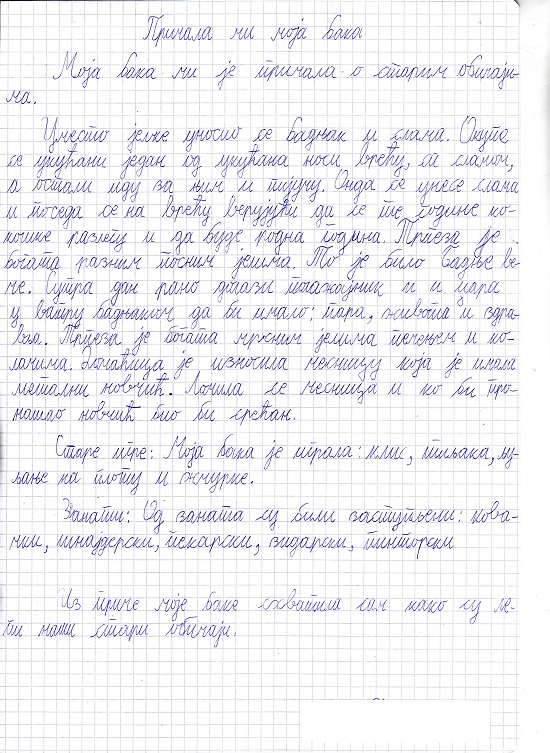 Причала ми моја бака
Моја бака ми је причала о старим обичаји-
ма.
Уместо јелке уносио се бадњак и слама. Окупе
се укућани један од укућана носи врећу, са сламом,
а остали иду за њим и пијучу. Онда се унесе слама
и поседа се на врећу верујући да се те године ко-
кошке разлегу и да буде родна година. Трпеза је
богата разним посним јелима. То је било Бадње ве-
че. Сутра дан рано долази положајник и џара
у ватру бадњаком да би имало: пара, живота и здра-
вља. Трпеза је богата мрсним јелима печењем и ко-
лачима. Домаћица је износила чесницу која је имала
метални новчић. Ломила се чесница и ко би про-
нашао новчић био би срећан.
Старе игре: Моја бака је играла: клис, пиљака,
љање на плоту и жмурке.
Занати: Од заната су били заступљени: кова-
чки, шнајдерски, пекарски, зидарски, пинторски
Из приче моје баке схватила сам како су ле-
пи наши стари обичаји.